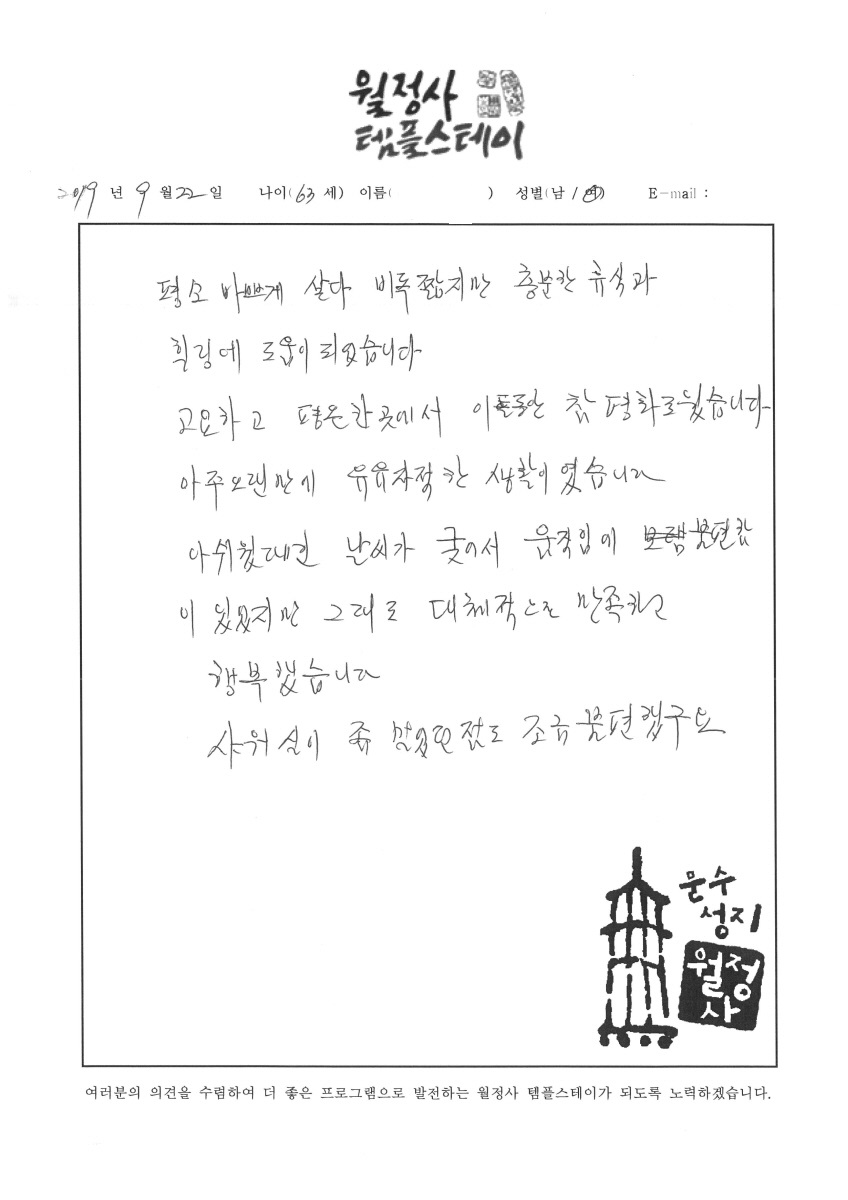 월정사
템플스테이
2019 년 9 월 22 일 나이( 63 세) 이름( ) 성별(남 / 여) E-mail :
평소 바쁘게 살다 비록 짧지만 충분한 휴식과
힐링에 도움이 되었습니다
고요하고 평온한 곳에서 이틀동안 참 평화로웠습니다
아주 오랜만에 유유자적한 생활이였습니다
아쉬웠다면 날씨가 궂어서 움직임에 불편함
이 있었지만 그대로 대체적으로 만족하고
행복했습니다
샤워실이 좀 멀었던 점도 조금 불편했구요
문수
성지
월정
사
여러분의 의견을 수렴하여 더 좋은 프로그램으로 발전하는 월정사 템플스테이가 되도록 노력하겠습니다.